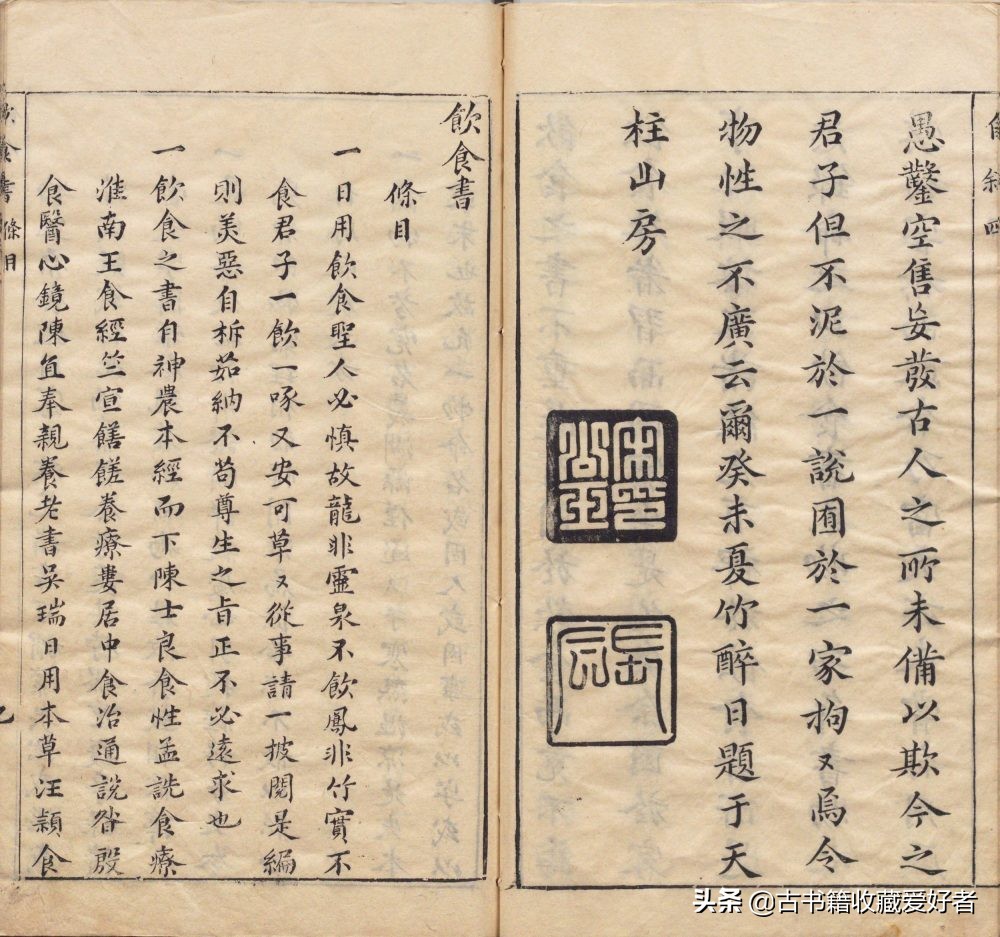 愚鑿空售妄發古人之所未備以欺今之
君子但不泥於一說囿於一家拘又焉令
物性之不廣云爾癸未夏竹醉日題于天
柱山房
飲食書
條目
一日用飲食聖人必慎故龍非靈泉不飲鳳非竹實不
食君子一飲一啄又安可草又從事請一披閱是編
則美惡自析茹納不苟尊生之旨正不必遠求也
一飲食之書自神農本經而下陳士良食性孟詵食療
淮南王食經竺宣饍饈養療婁居中食治通說昝殷
食醫心鏡陳直奉親養老書吳瑞日用本草汪穎食
飲食書 條目
头条 @古书籍收藏爱好者